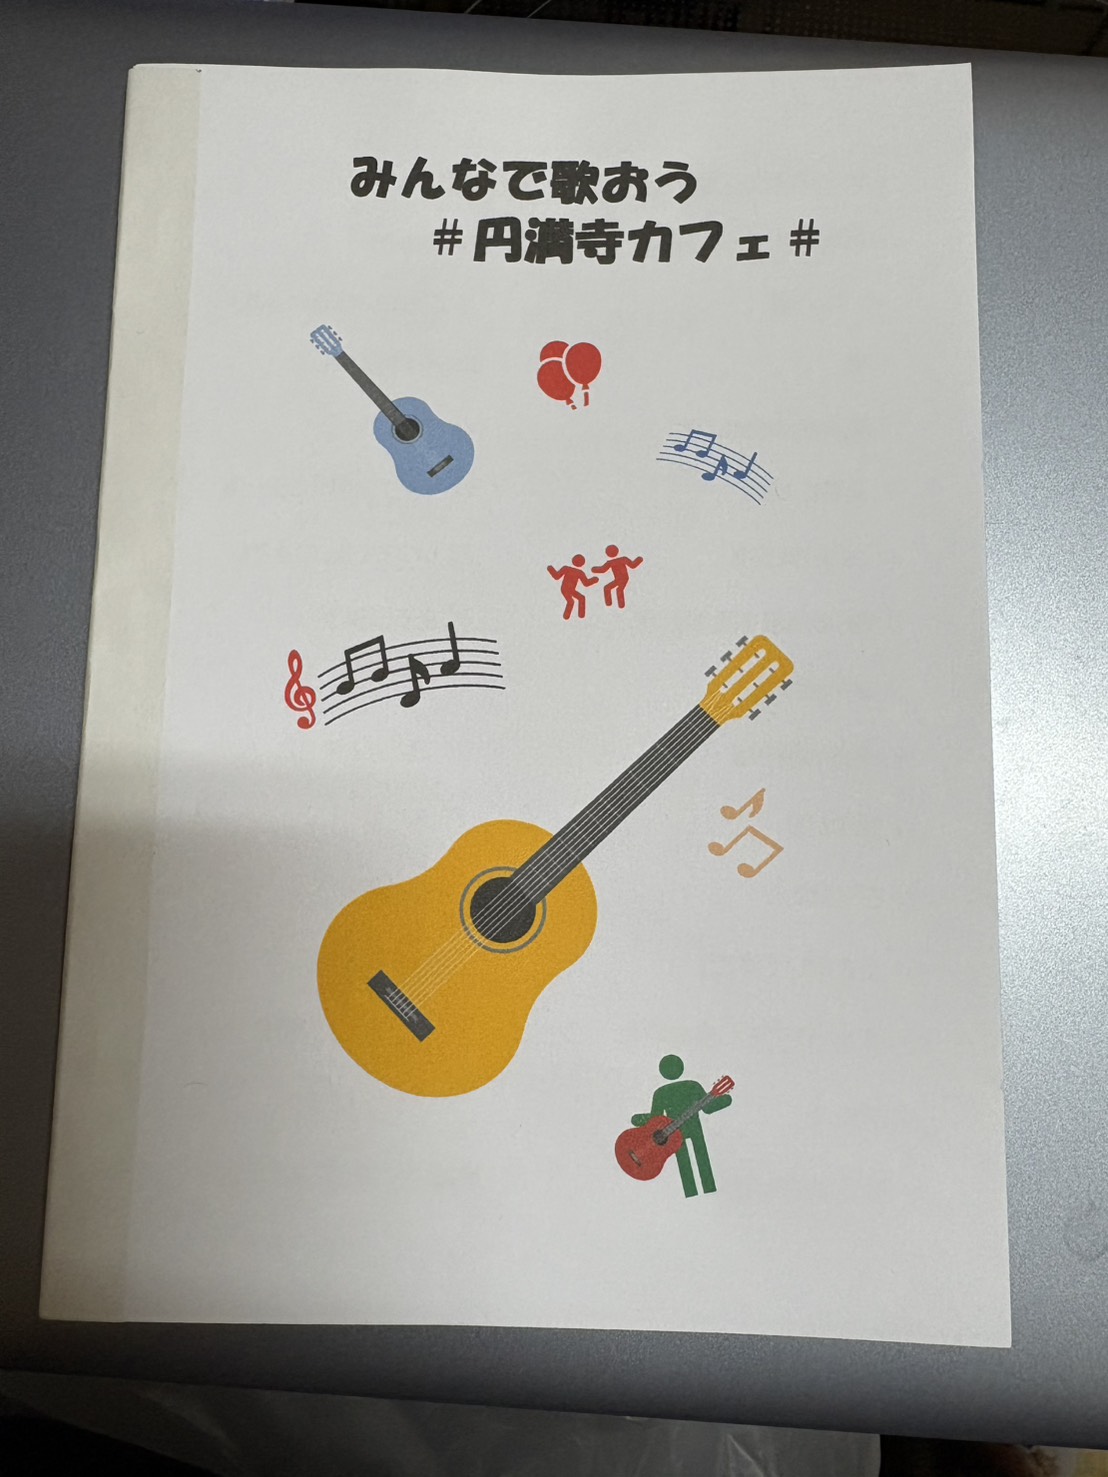 みんなで歌おう
#円満寺カフェ#